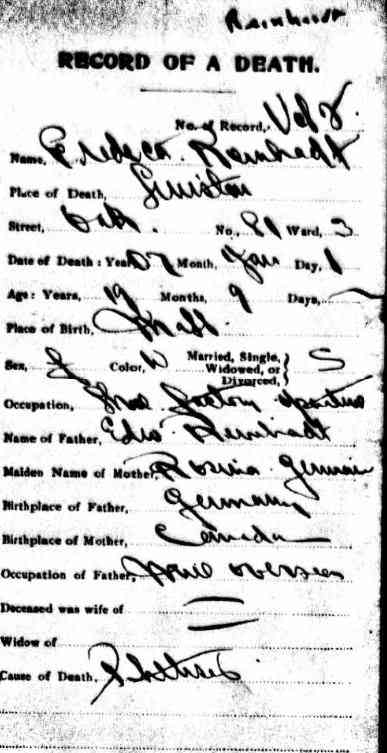 Reinhardt
RECORD OF A DEATH.
No. of Record, Vol 2.
Name, Rebeca Reinhardt
Place of Death, Lewiston
Street, Oak. No., 81 Ward, 3
Date of Death: Year, 07 Month, Jan Day, 1
Age: Years, 19 Months, 9 Days,
Place of Birth, Mass.
Sex, f Color, W Married, Single, Widowed, or Divorced, S
Occupation, Shoe factory
Name of Father, Reinhardt
Maiden Name of Mother, Rosina Germain
Birthplace of Father, Germany
Birthplace of Mother, Canada
Occupation of Father, overseer
Deceased was wife of
Widow of
Cause of Death,